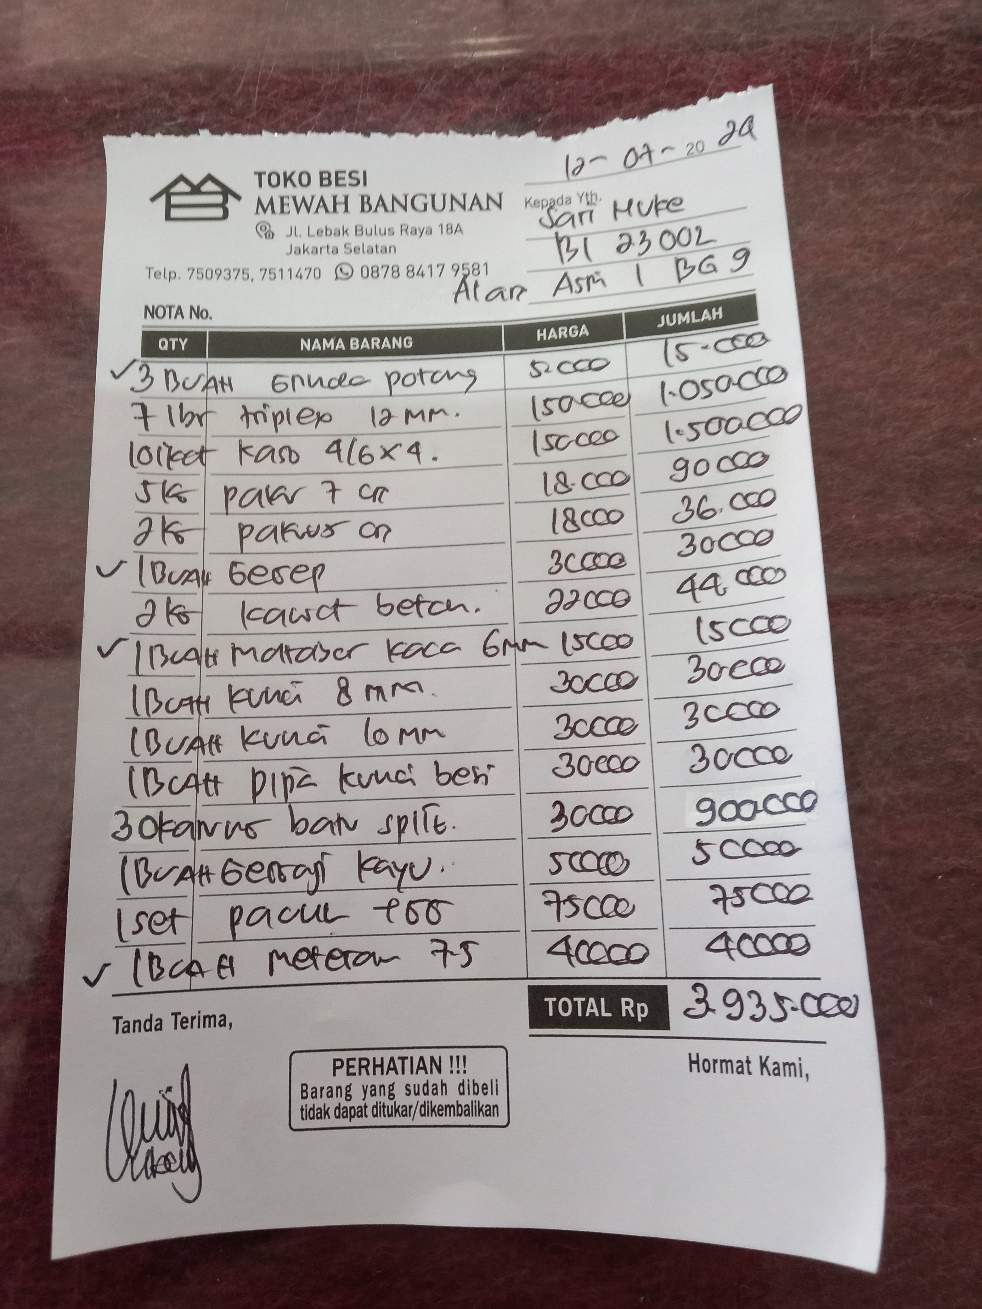 12-07-2024
TOKO BESI
MEWAH BANGUNAN
Jl. Lebak Bulus Raya 18A
Jakarta Selatan
Telp. 7509375, 7511470 0878 8417 9581
Kepada Yth.
Sari Muke
BI 23002
Alan Asri 1 BG 9
NOTA No.
QTY NAMA BARANG HARGA JUMLAH
3 BUAH potong 5.000 15.000
7 lbr triplex 12 MM. 150.000 1.050.000
10 iket kaso 4/6x4. 150.000 1.500.000
5 KG paku 7 cn 18.000 90000
2 KG cn 18000 36.000
1 BUAH Gesep 30000 30000
2 KG kawat beton. 22000 44.000
1 BUAH Matabor kaca 6MM 15000 15000
1 BUAH kunci 8 MM. 30000 30000
1 BUAH kunci 10 MM 30000 30000
1 BUAH pipa kunci besi 30000 30000
30 batu split. 30000 900.000
1 BUAH Gergaji kayu. 50000 50000
1 set pacul 75000 75000
1 BUAH Meteran 7.5 40000 40000
TOTAL Rp 3.935.000
Tanda Terima,
PERHATIAN !!!
Barang yang sudah dibeli
tidak dapat ditukar/dikembalikan
Hormat Kami,